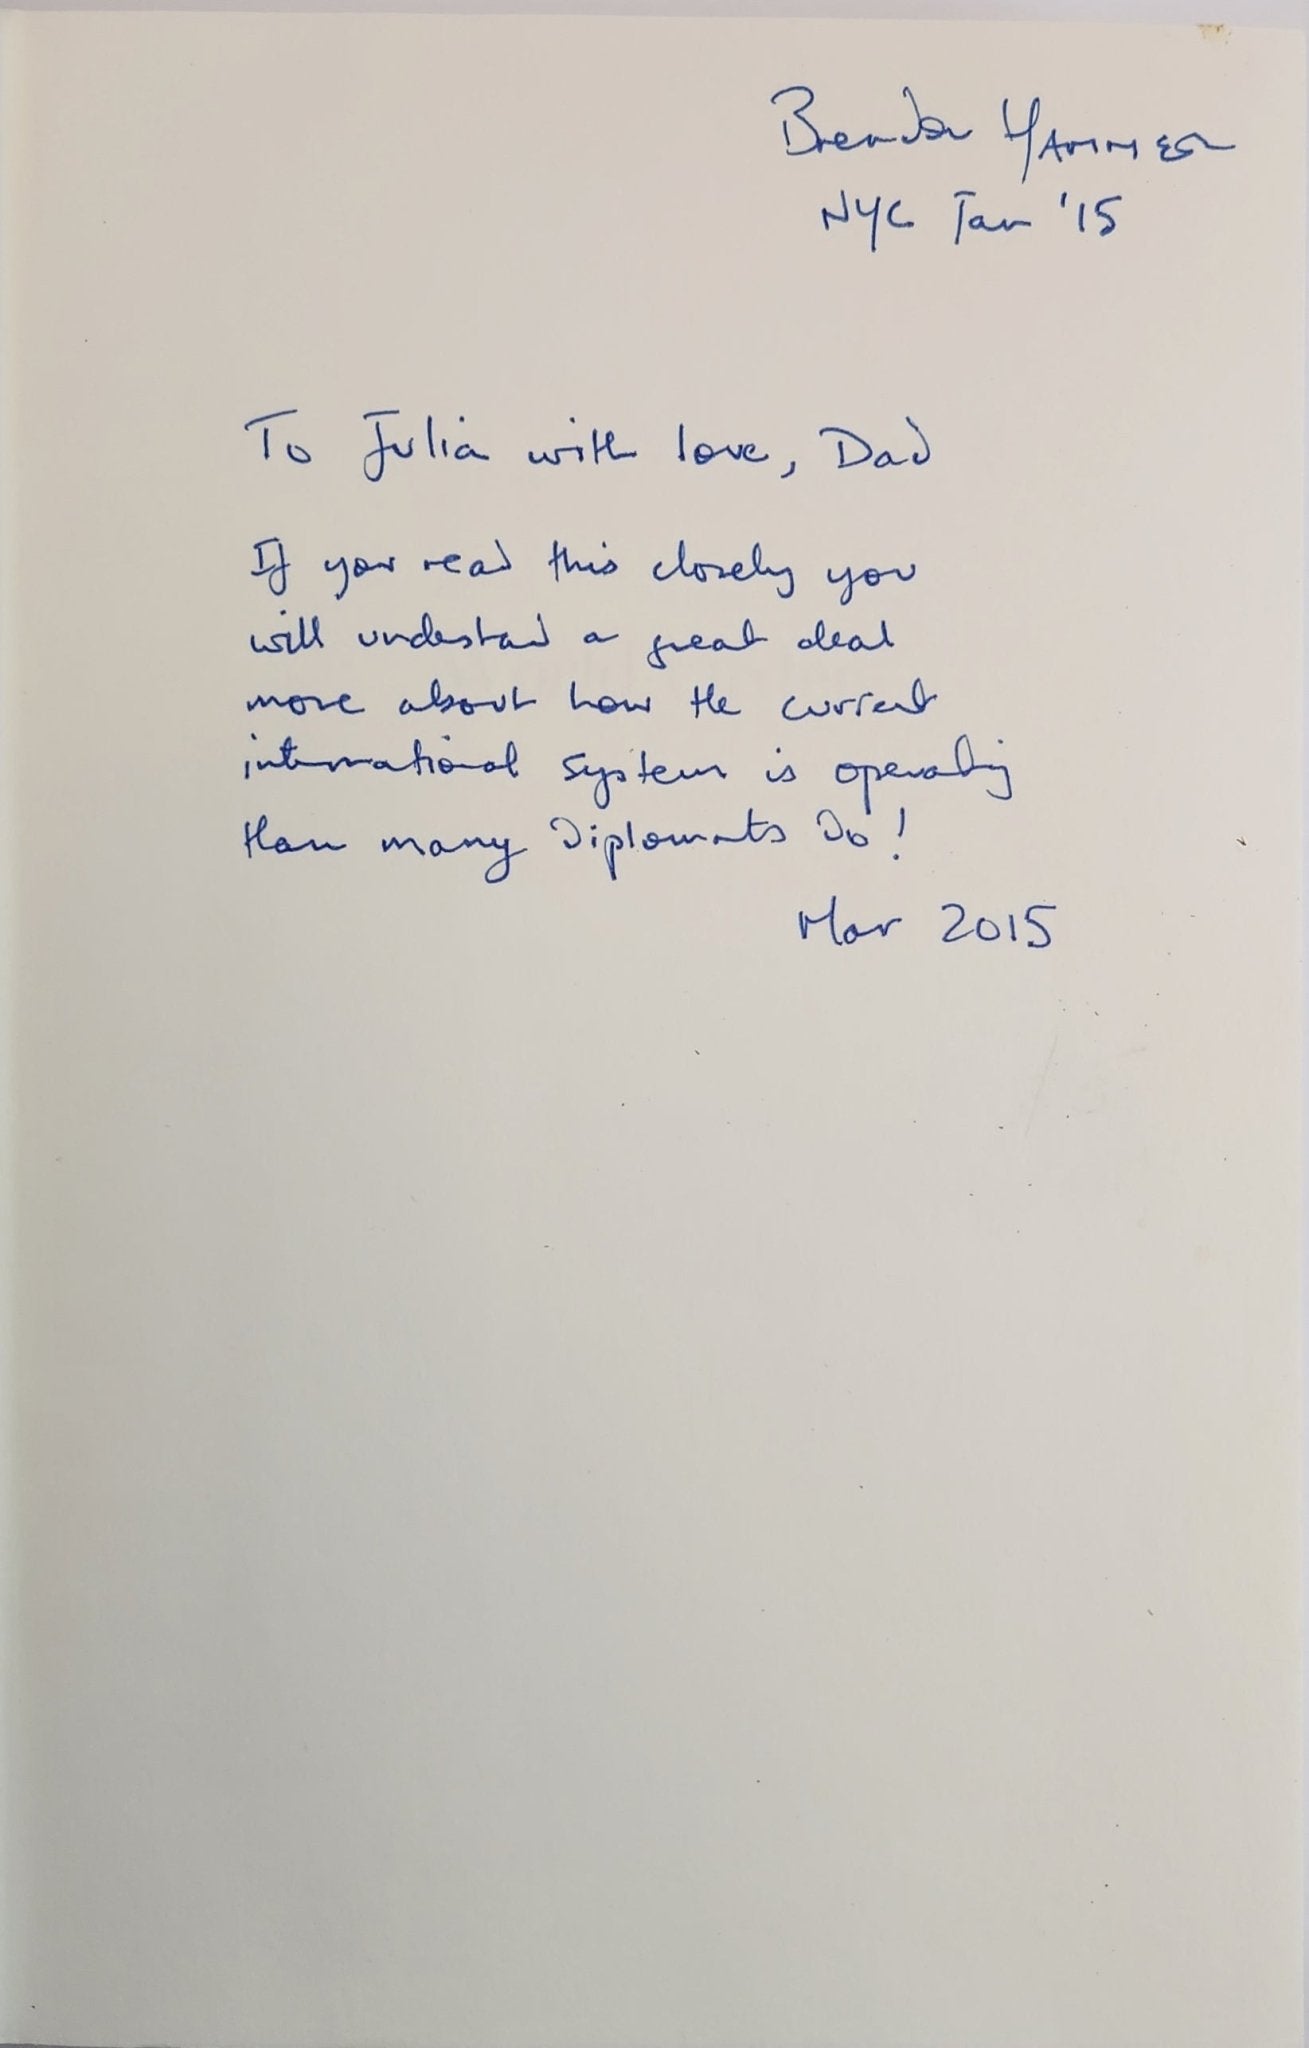 Brendon HAMMER
NYC Jan '15
To Julia with love, Dad
If you read this closely you
will understand a great deal
more about how the current
international system is operating
than many diplomats do!
Mar 2015